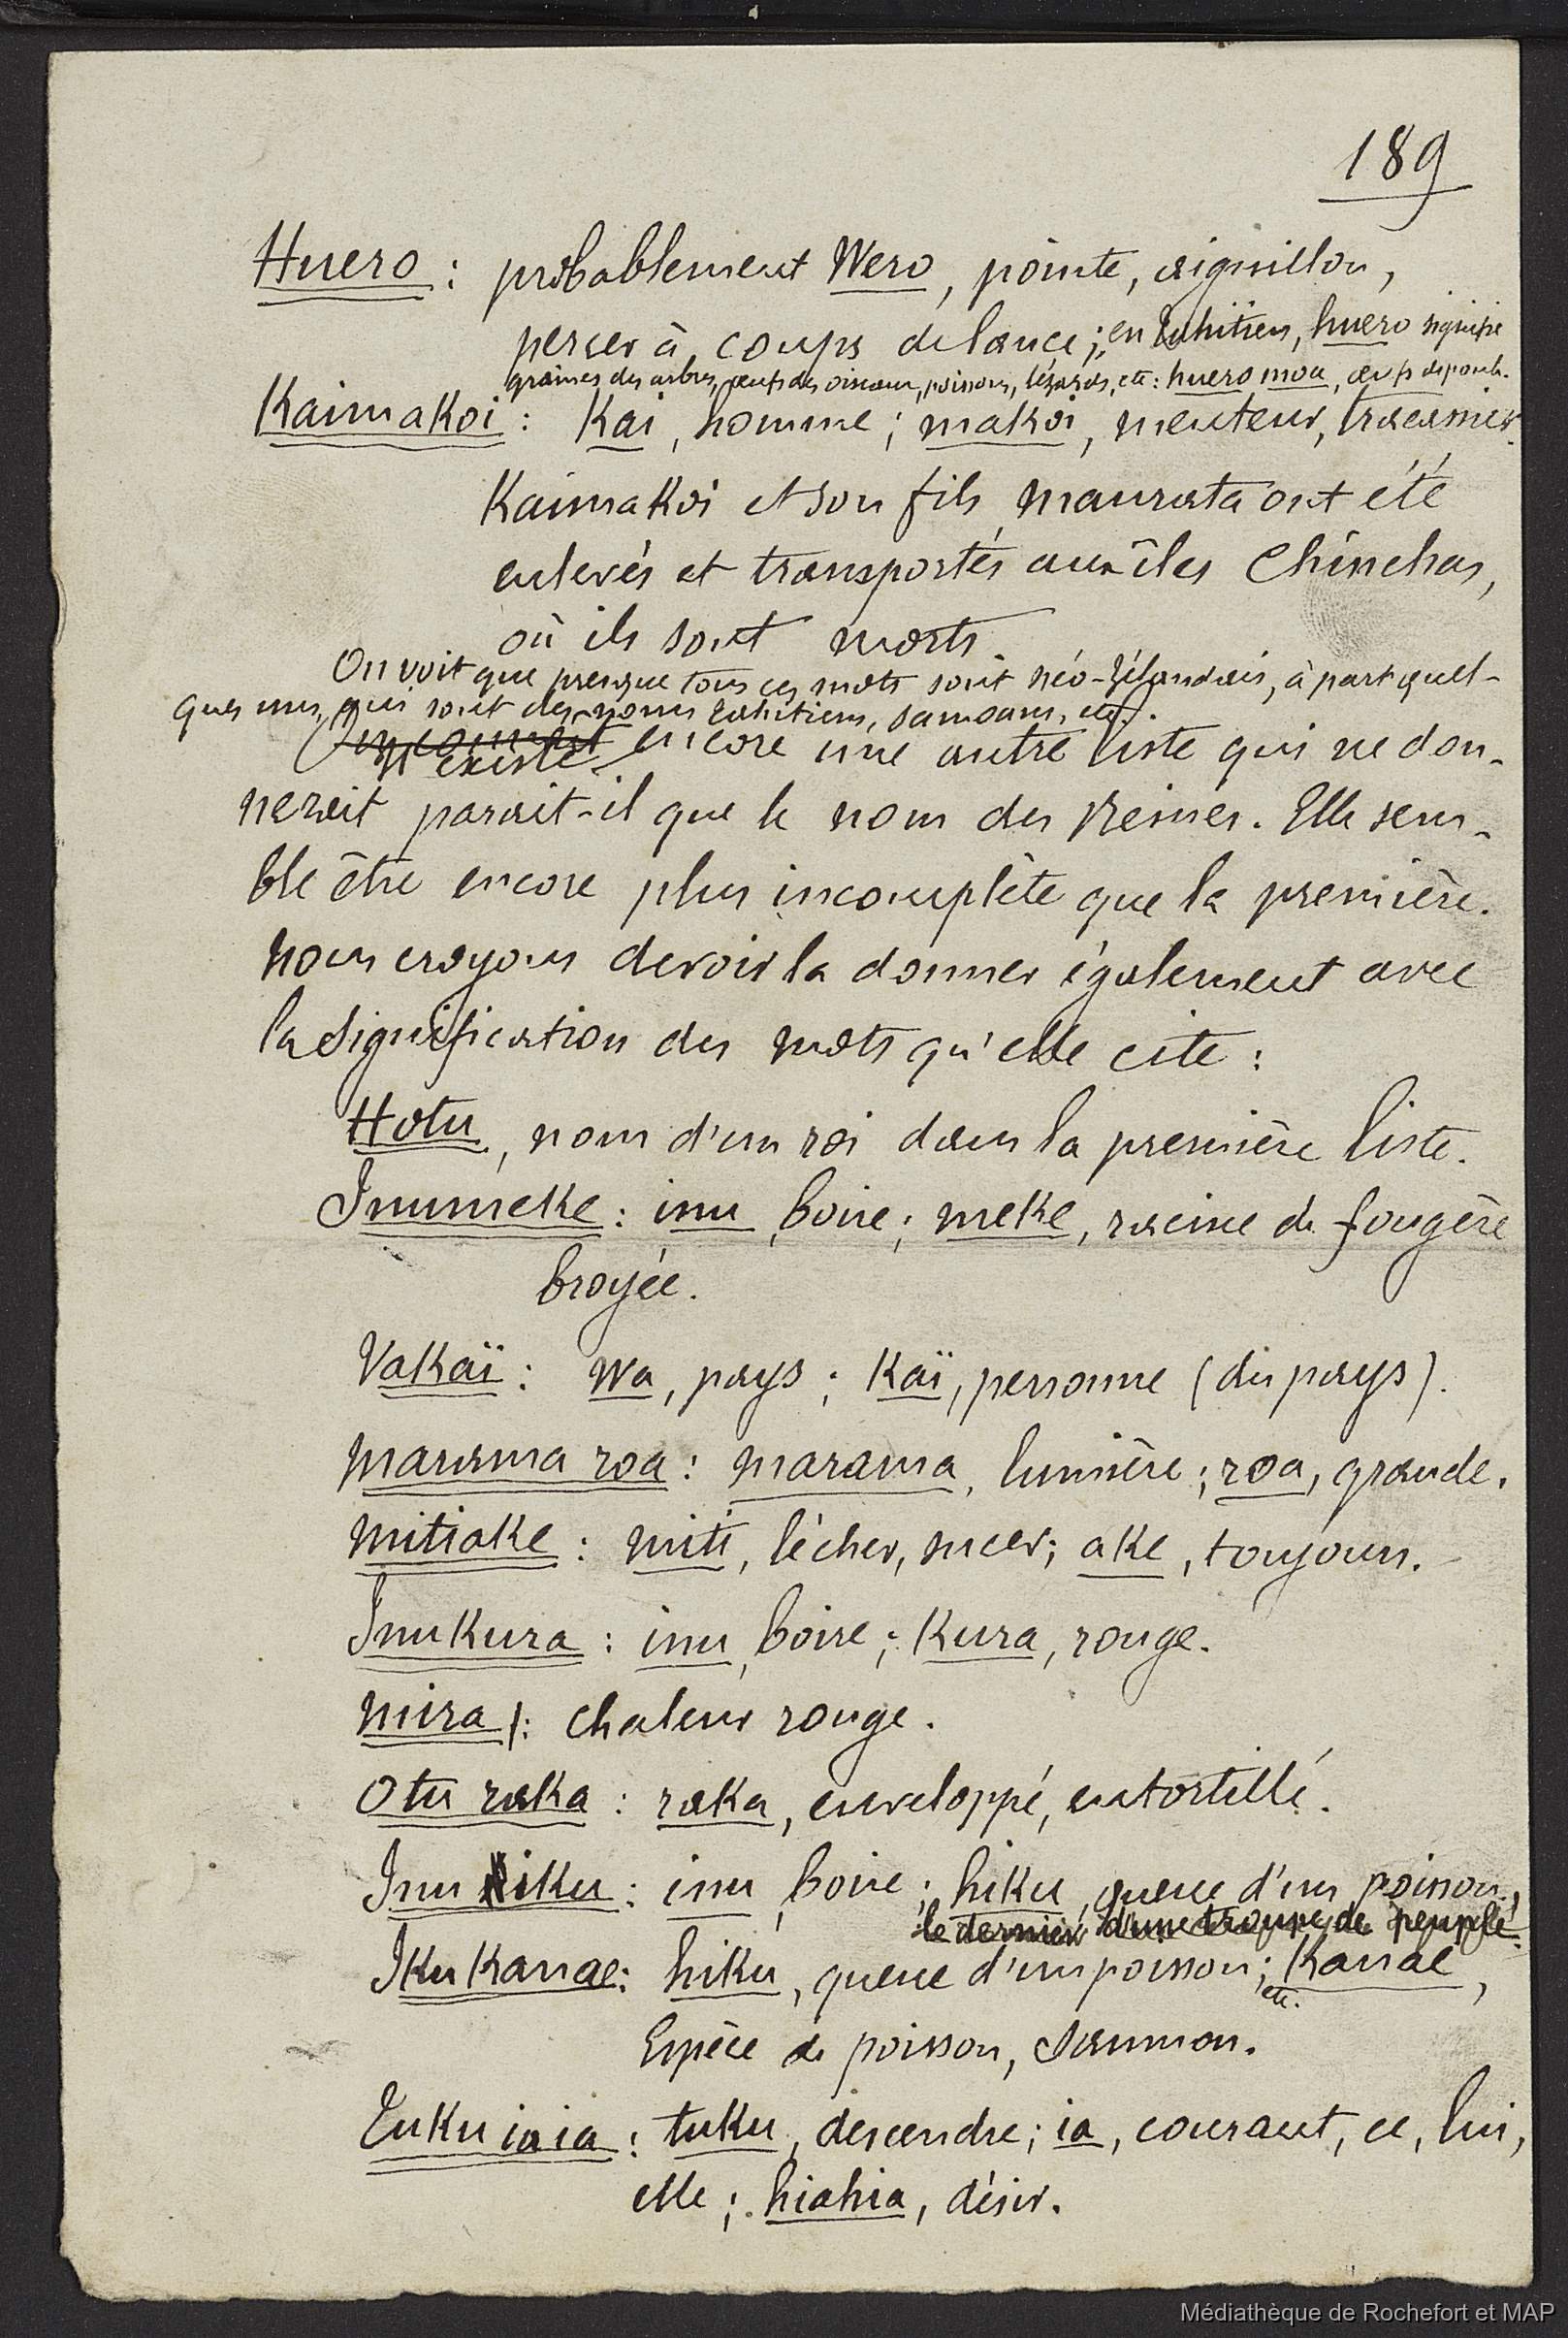 189
Huero : probablement Wero, pointe, aiguillon,
percer à coups de lance ; en tahitien, huero signifie
graines des arbres, œufs des oiseaux, poissons, lézards, etc : huero moa, œufs de poule.
Kaimakoi : Kai, homme ; makoi, menteur, tracassier.
Kaimakoi et son fils Maurata ont été
enlevés et transportés aux îles Chinchas,
où ils sont morts.
On voit que presque tous ces mots sont néo-Zélandais, à part quel-
ques uns, qui sont des noms tahitiens, samoans, etc.
Il existe encore une autre liste qui ne don-
nerait parait-il que le nom des Reines. Elle sem-
ble être encore plus incomplète que la première.
Nous croyons devoir la donner également avec
la signification des mots qu'elle cite :
Hotu, nom d'un roi dans la première liste.
Inumeke : inu, boire ; meke, racine de fougère
broyée.
Vakaï : wa, pays ; Kaï, personne (du pays).
Marama roa : marama, lumière ; roa, grande.
Mitiake : miti, lécher, sucer ; ake, toujours.
Inukura : inu, boire ; Kura, rouge.
Mira : chaleur rouge.
Otu raka : raka, enveloppé, entortillé.
Inu iku : inu, boire ; hiku, queue d'un poisson,
le dernier d'une troupe de peuple.
Iku Kanae : hiku, queue d'un poisson ; Kanae,
etc.
Espèce de poisson, Saumon.
Tuku ia ia : tuku, descendre ; ia, courant, ce, lui,
elle ; hiahia, désir.
Médiathèque de Rochefort et MAP